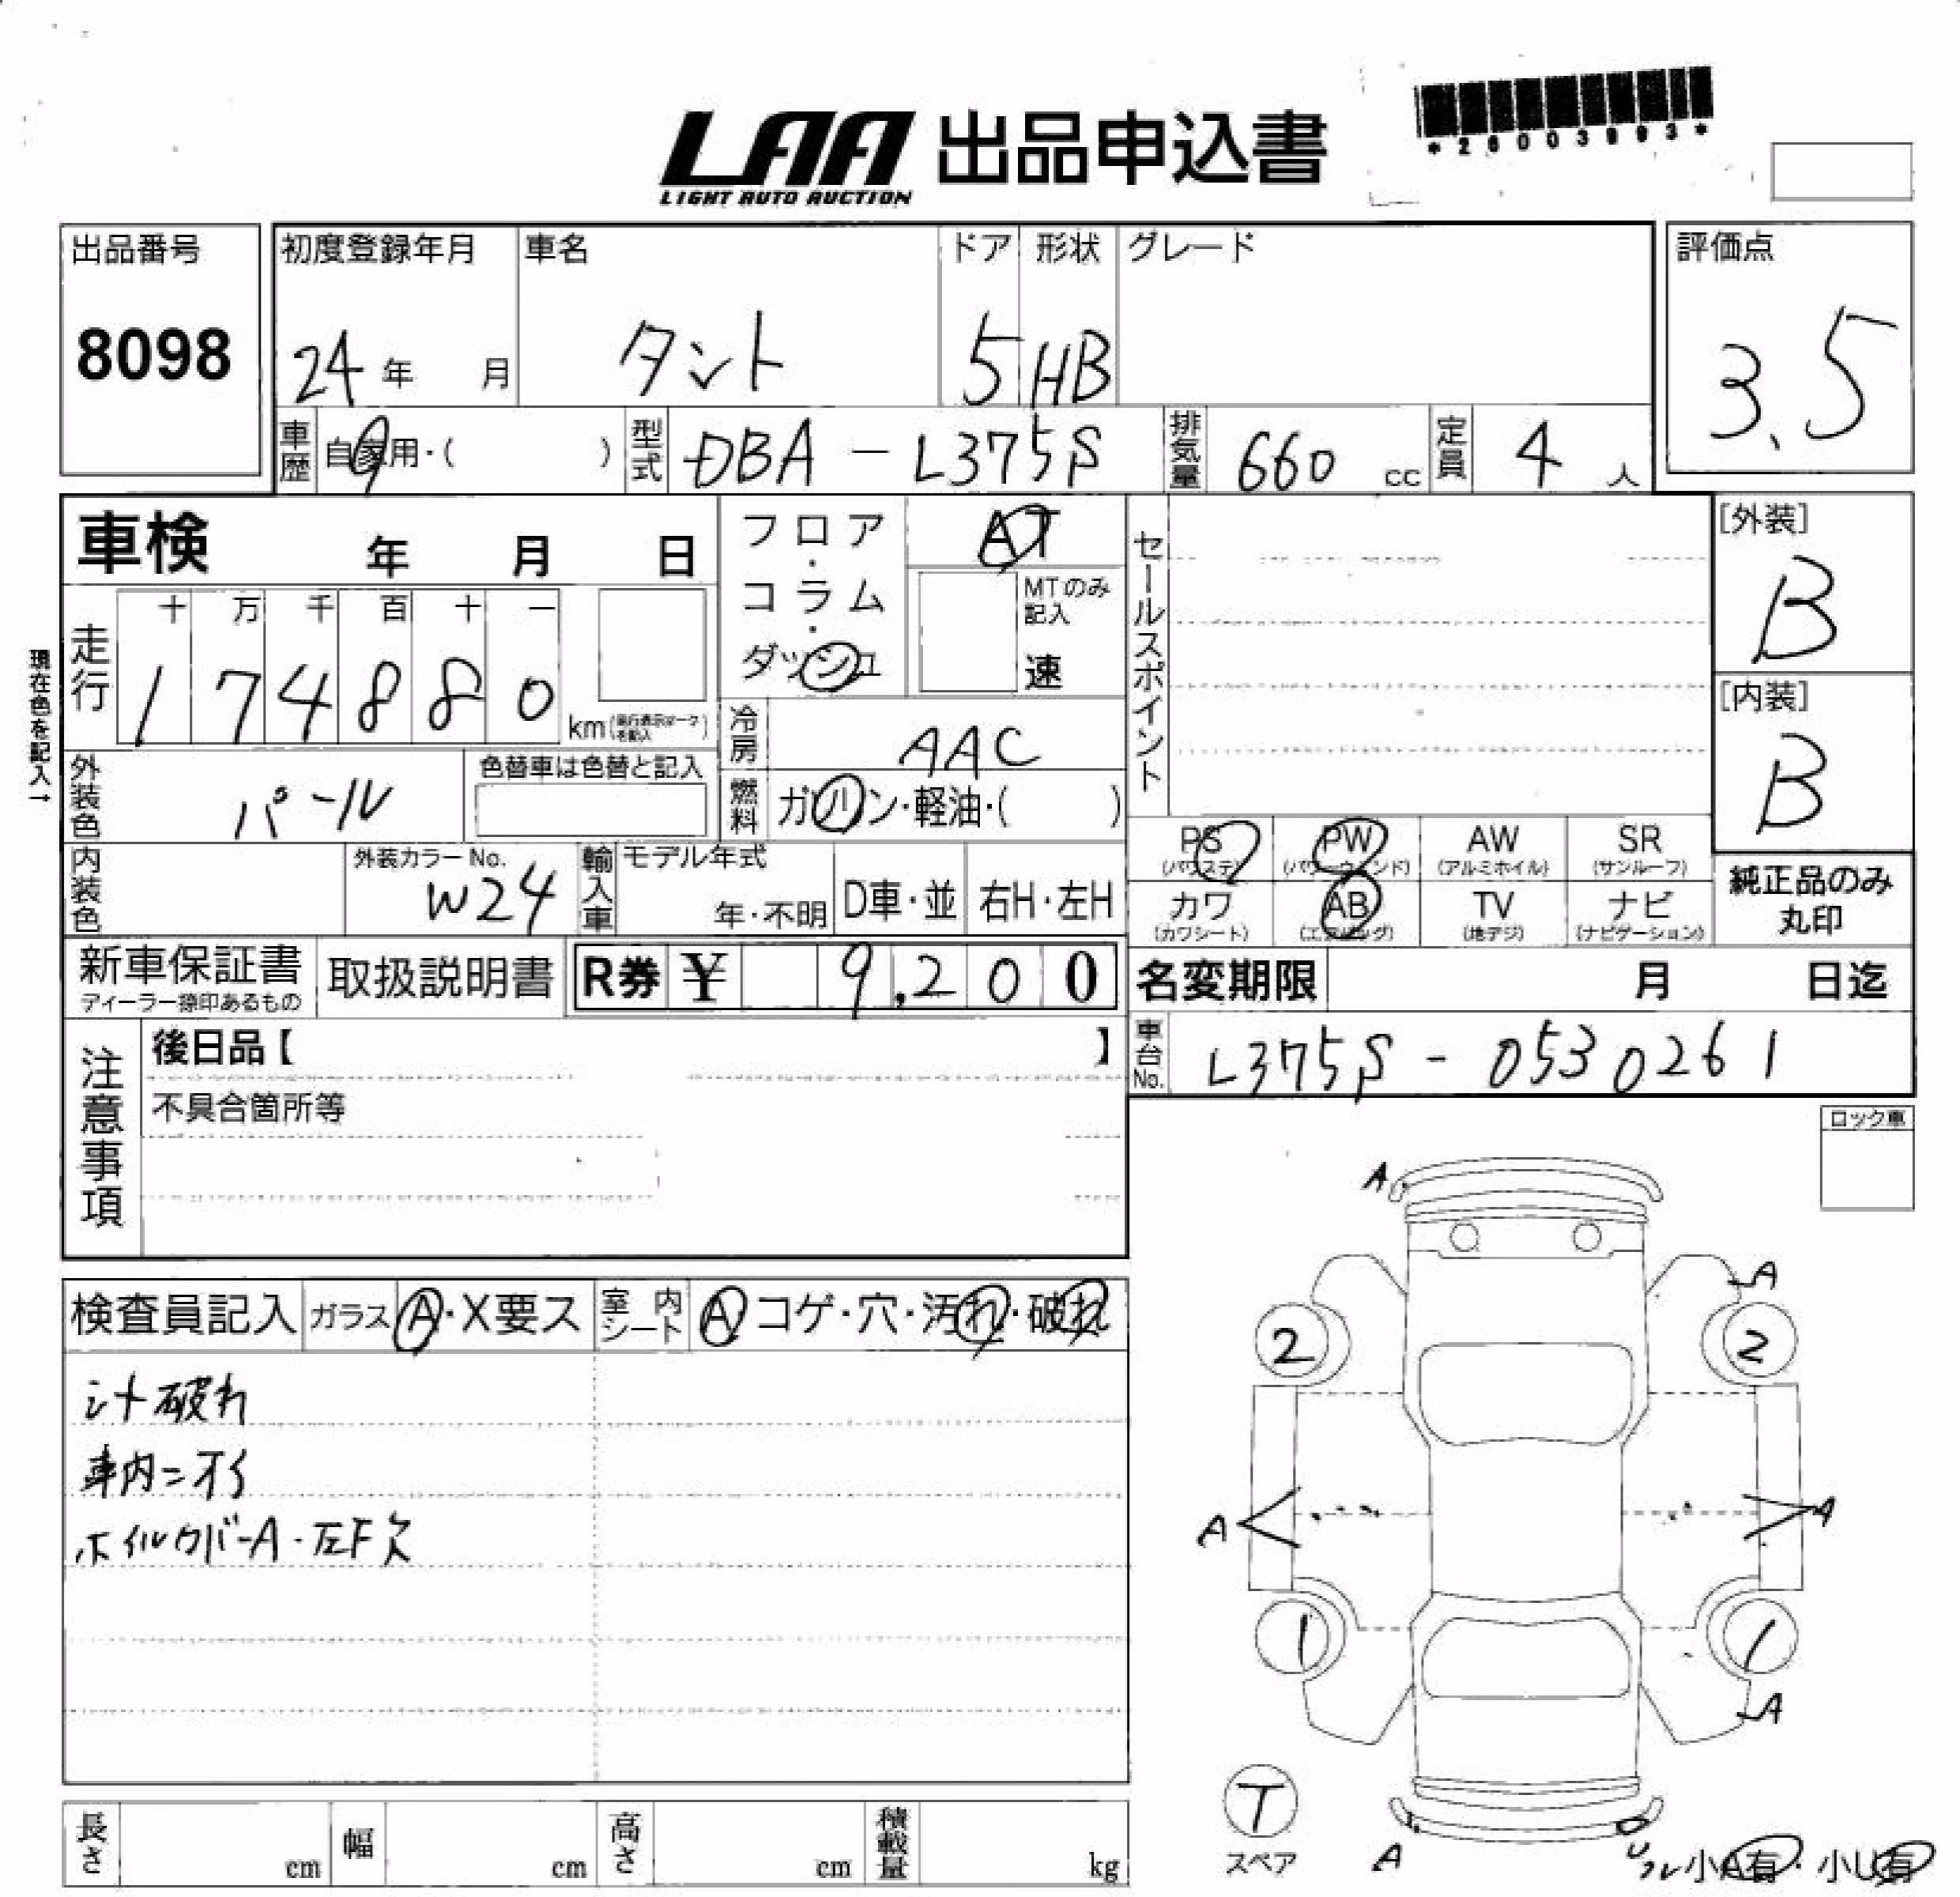 LAA 出品申込書
LIGHT AUTO AUCTION
*26003993*
出品番号
8098
初度登録年月
24年 月
車名
タント
ドア
5
形状
HB
グレード
評価点
3.5
車歴 自家用・( )
型式 DBA-L375S
排気量 660 cc
定員 4 人
車検 年 月 日
現在色を記入→
走行
十 万 千 百 十 一
1 7 4 8 8 0 km
フロア・コラム・ダッシュ
AT
MTのみ記入
速
冷房 AAC
燃料 ガソリン・軽油・( )
外装色 パール
色替車は色替と記入
内装色
外装カラーNo.
W24
輸入車
モデル年式
年・不明
D車・並
右H・左H
セールスポイント
[外装]
B
[内装]
B
PS (パワステ)
PW (パワーウィンド)
AW (アルミホイル)
SR (サンルーフ)
カワ (カワシート)
AB (エアバッグ)
TV (地デジ)
ナビ (ナビゲーション)
純正品のみ丸印
新車保証書
ディーラー捺印あるもの
取扱説明書
R券 ¥ 9,200
名変期限 月 日迄
車台No. L375S-0530261
注意事項
後日品【 】
不具合箇所等
ロック車
検査員記入
ガラス A・X要ス
室内シート A コゲ・穴・汚れ・破れ
シート破れ
車内ニオイ
ホイルカバーA・左F欠
A
A
2
2
A
A
1
1
A
T
スペア
A
U
小A有・小U有
長さ cm
幅 cm
高さ cm
積載量 kg